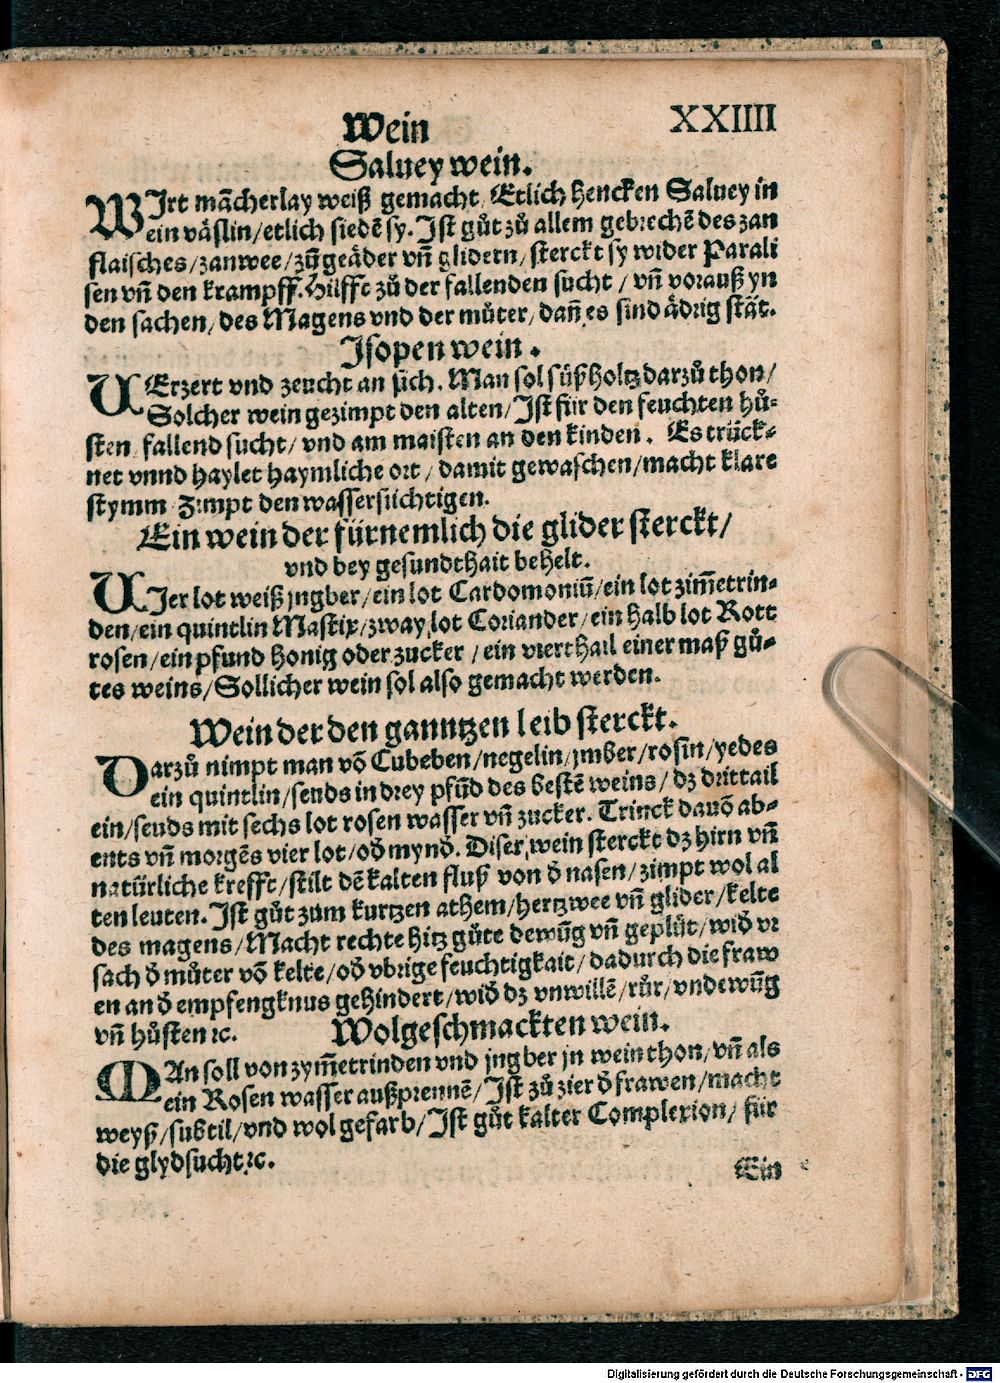 Wein
XXIIII
Saluey wein.
WIrt mãcherlay weiß gemacht, Etlich hencken Saluey in
ein väslin/etlich siedẽ sy. Ist gůt zů allem gebrechẽ des zan
flaisches/zanwee/zũ geäder vñ glidern/sterckt sy wider Parali
sen vñ den krampff. Hilfft zů der fallenden sucht/vñ vorauß yn
den sachen/des Magens vnd der můter/dañ es sind ädrig stät.
Isopen wein.
VErzert vnd zeucht an sich. Man sol süßholtz darzů thon/
Solcher wein gezimpt den alten/Ist für den feuchten hů-
sten, fallend sucht/vnd am maisten an den kinden. Es trück-
net vnnd haylet haymliche ort/damit gewaschen/macht klare
stymm Zimpt den wassersüchtigen.
Ein wein der fürnemlich die glider sterckt/
vnd bey gesundthait behelt.
VIer lot weiß jngber/ein lot Cardomoniũ/ein lot zim̃etrin-
den/ein quintlin Mastix/zway lot Coriander/ein halb lot Rott
rosen/ein pfund honig oder zucker/ein vierthail einer maß gů-
tes weins/Sollicher wein sol also gemacht werden.
Wein der den ganntzen leib sterckt.
Darzů nimpt man võ Cubeben/negelin/jmber/rosin/yedes
ein quintlin/seuds in drey pfũd des bestẽ weins/dz drittail
ein/seuds mit sechs lot rosen wasser vñ zucker. Trinck dauõ ab-
ents vñ morgẽs vier lot/od̃ mynd̃. Diser wein sterckt dz hirn vñ
natürliche krefft/stilt dẽ kalten fluß von d̃ nasen/zimpt wol al
ten leuten. Ist gůt zum kurtzen athem/hertzwee vñ glider/kelte
des magens/Macht rechte hitz gůte dewũg vñ geplůt/wid̃ vr
sach d̃ můter võ kelte/od̃ vbrige feuchtigkait/dadurch die fraw
en an d̃ empfengknus gehindert/wid̃ dz vnwillẽ/růr/vndewũg
vñ hůsten ꝛc.
Wolgeschmackten wein.
MAn soll von zym̃etrinden vnd jngber jn wein thon/vñ als
ein Rosen wasser außprennẽ/Ist zů zier d̃ frawen/macht
weyß/subtil/vnd wol gefarb/Ist gůt kalter Complexion/für
die glydsucht ꝛc.
Ein
Digitalisierung gefördert durch die Deutsche Forschungsgemeinschaft - DFG